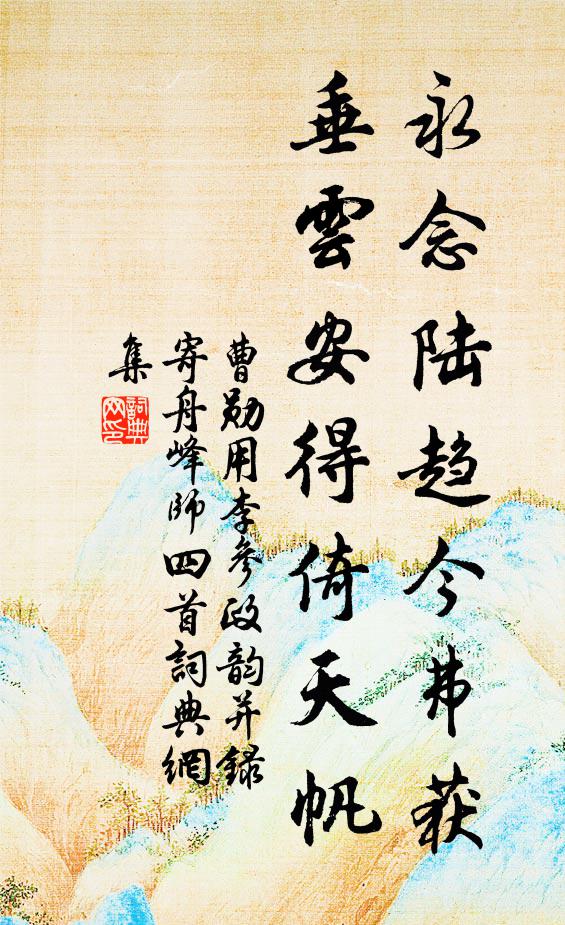 永念陆趋今弗获
垂雲安得倚天帆
曹勛用李參政韵并錄
寄舟峰師四首詞典網
集
詞典
网印